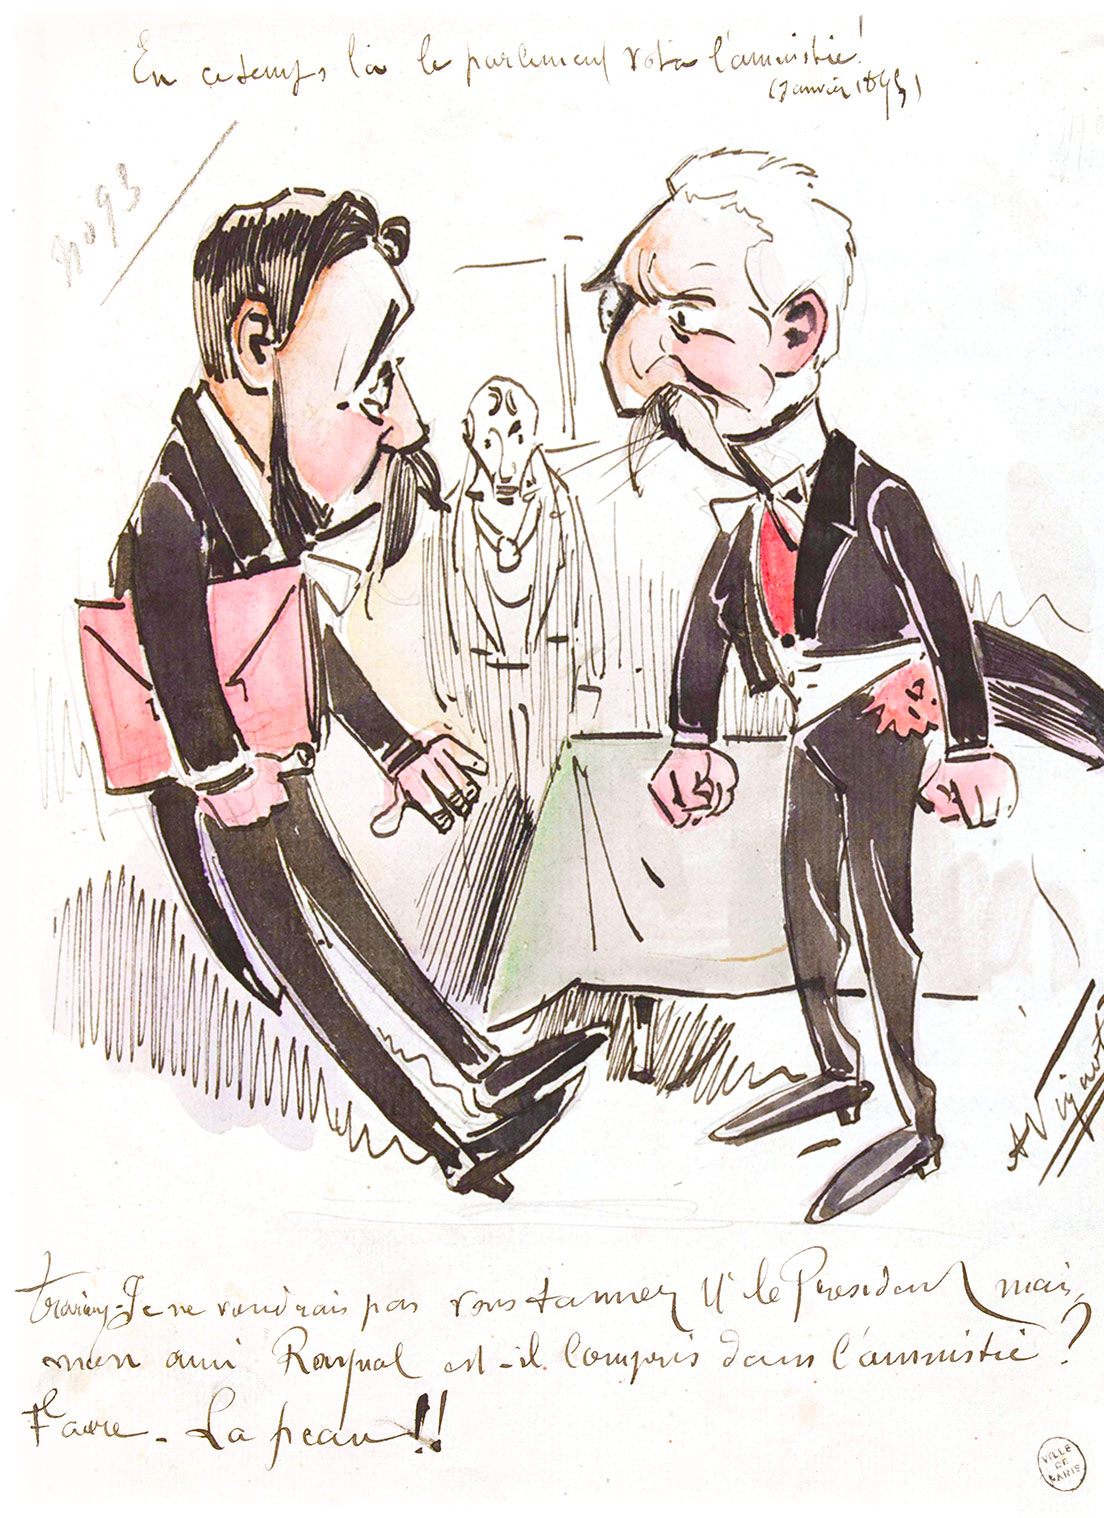 En ce temps là le parlement vota l'amnistie!
(Janvier 1895)
A Vignola
Trarieux - Je ne voudrais pas vous tanner Mr le President mais,
mon ami Raynal est-il compris dans l'amnistie?
Faure - La peau!!
VILLE
DE
PARIS